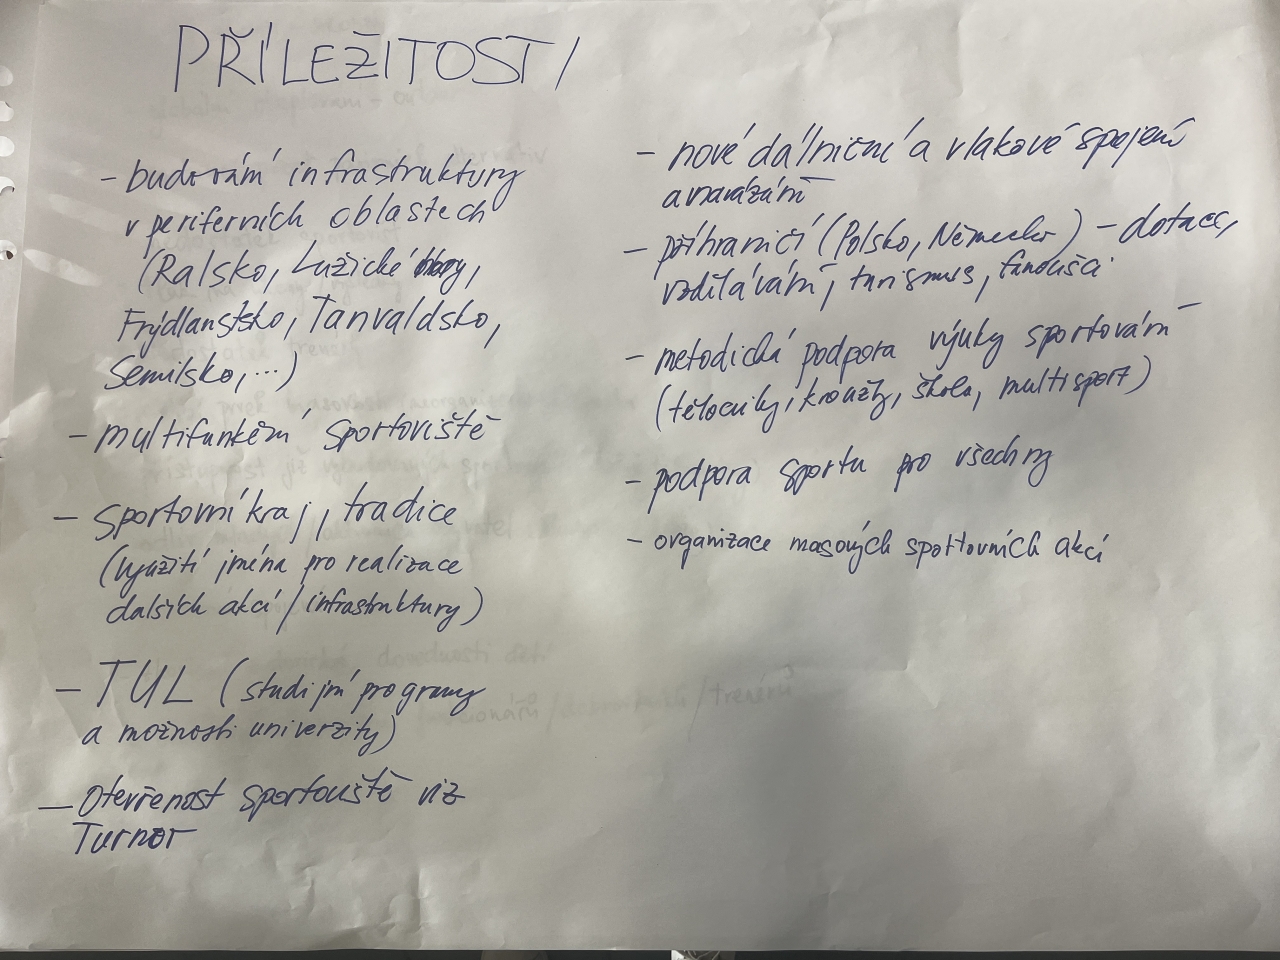 PŘÍLEŽITOSTI
- budování infrastruktury
v periferních oblastech
(Ralsko, Lužické hory,
Frýdlantsko, Tanvaldsko,
Semilsko, ...)
- multifunkční sportoviště
- sportovní kraj, tradice
(využití jména pro realizace
dalších akcí / infrastruktury)
- TUL (studijní programy
a možnosti univerzity)
- Otevřenost sportoviště viz
Turnov
- nové dálniční a vlakové spojení
a navázání
- příhraničí (Polsko, Německo) - dotace,
vzdělávání, turismus, fanoušci
- metodická podpora výuky sportování
(tělocviky, kroužky, škola, multisport)
- podpora sportu pro všechny
- organizace masových sportovních akcí